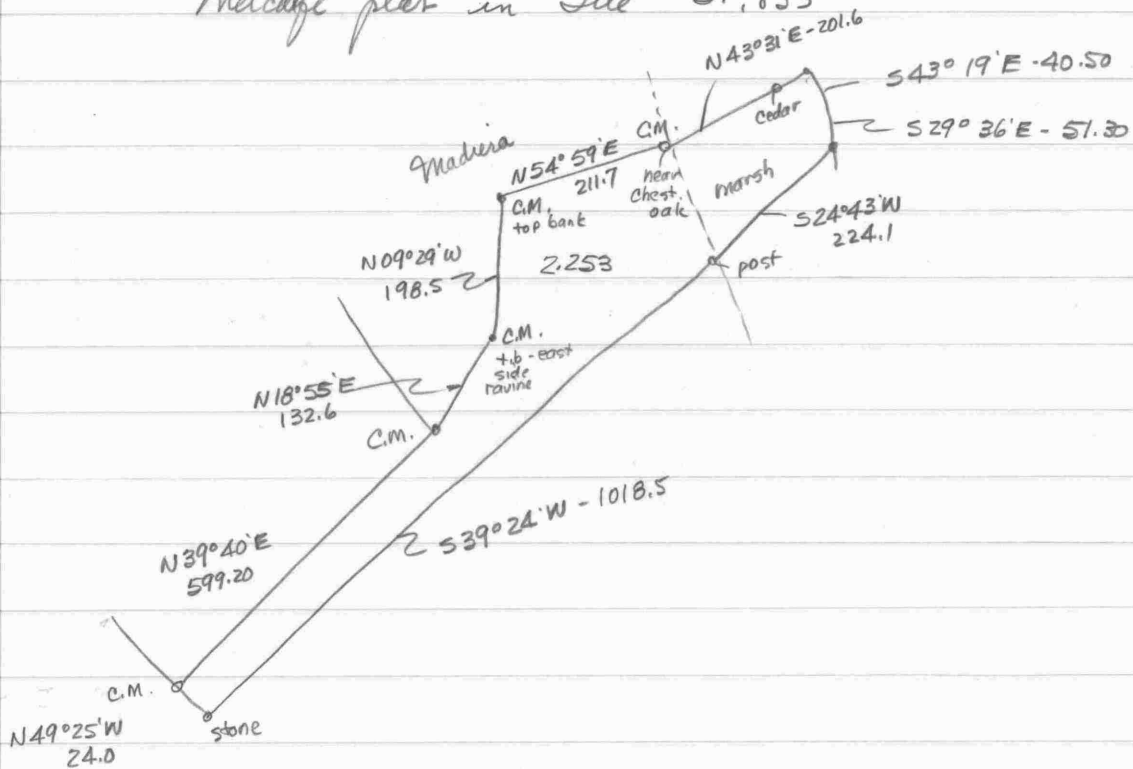 plat in
N43°31'E-201.6
S43°19'E-40.50
cedar
S29°36'E-51.30
C.M.
Madiera
N54°59'E
211.7
near
chest.
oak
marsh
C.M.
top bank
S24°43'W
224.1
N09°29'W
198.5
2.253
post
C.M.
t.b-east
side
ravine
N18°55'E
132.6
C.M.
S39°24'W-1018.5
N39°40'E
599.20
C.M.
stone
N49°25'W
24.0